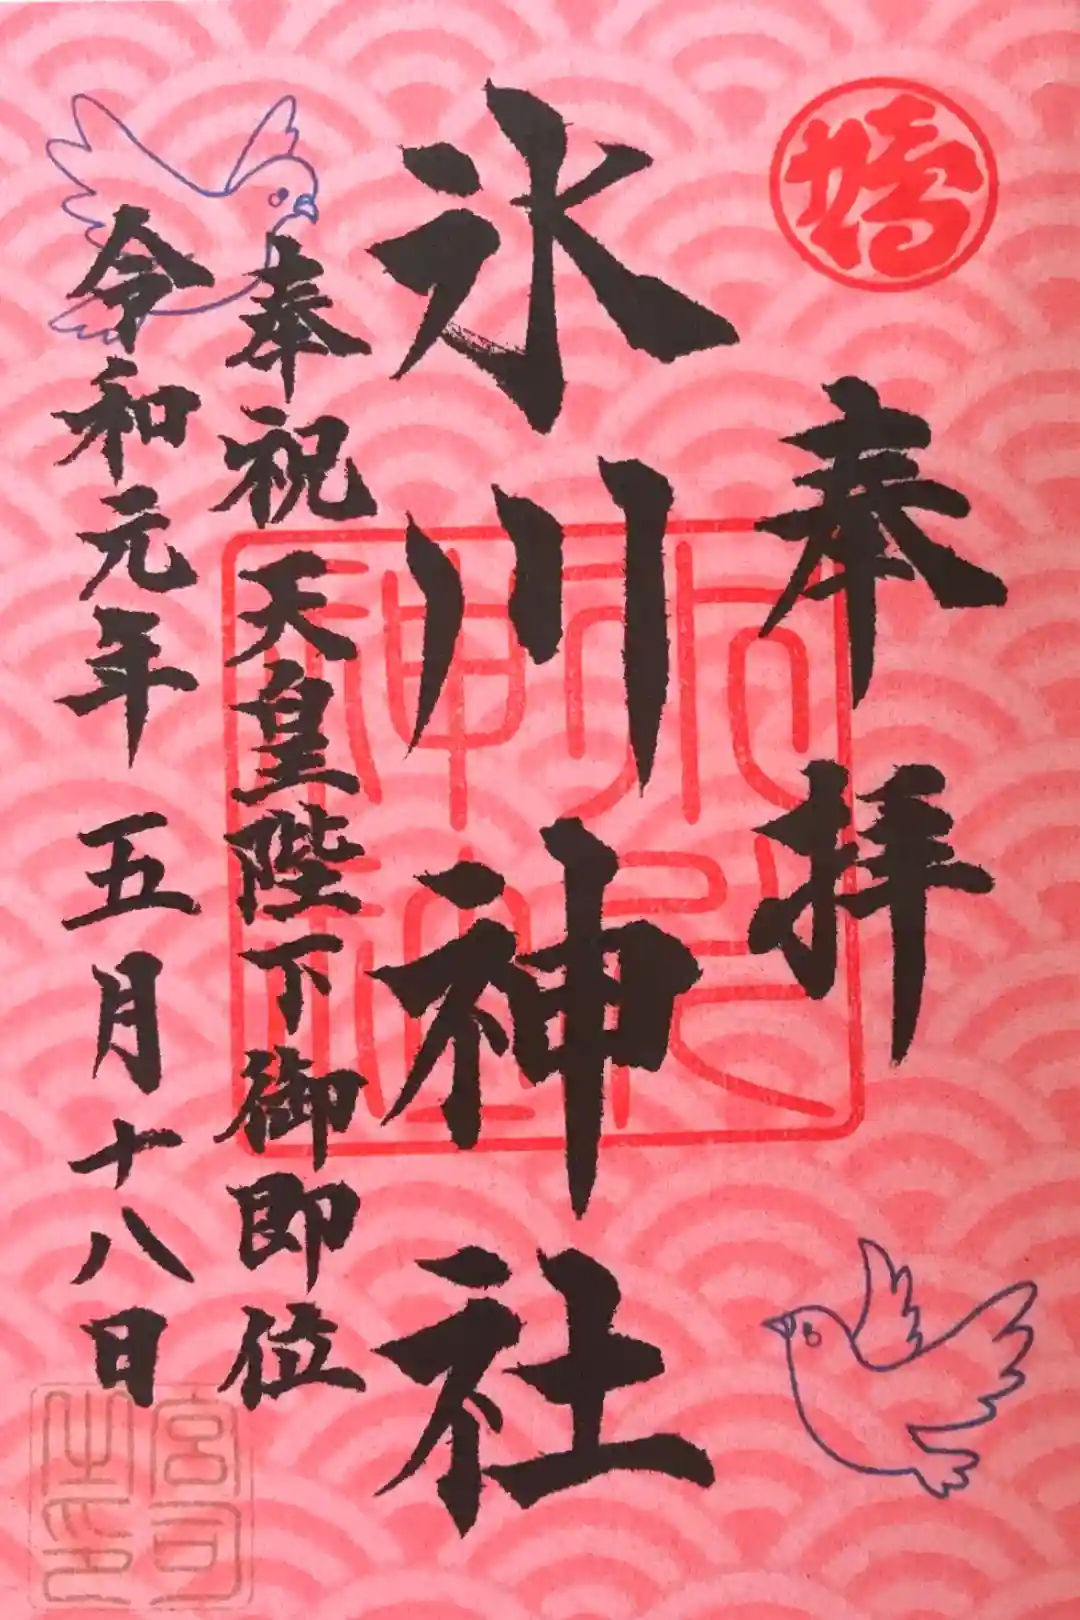 奉拝
氷川神社
奉祝 天皇陛下御即位
令和元年 五月十八日
宮司之印